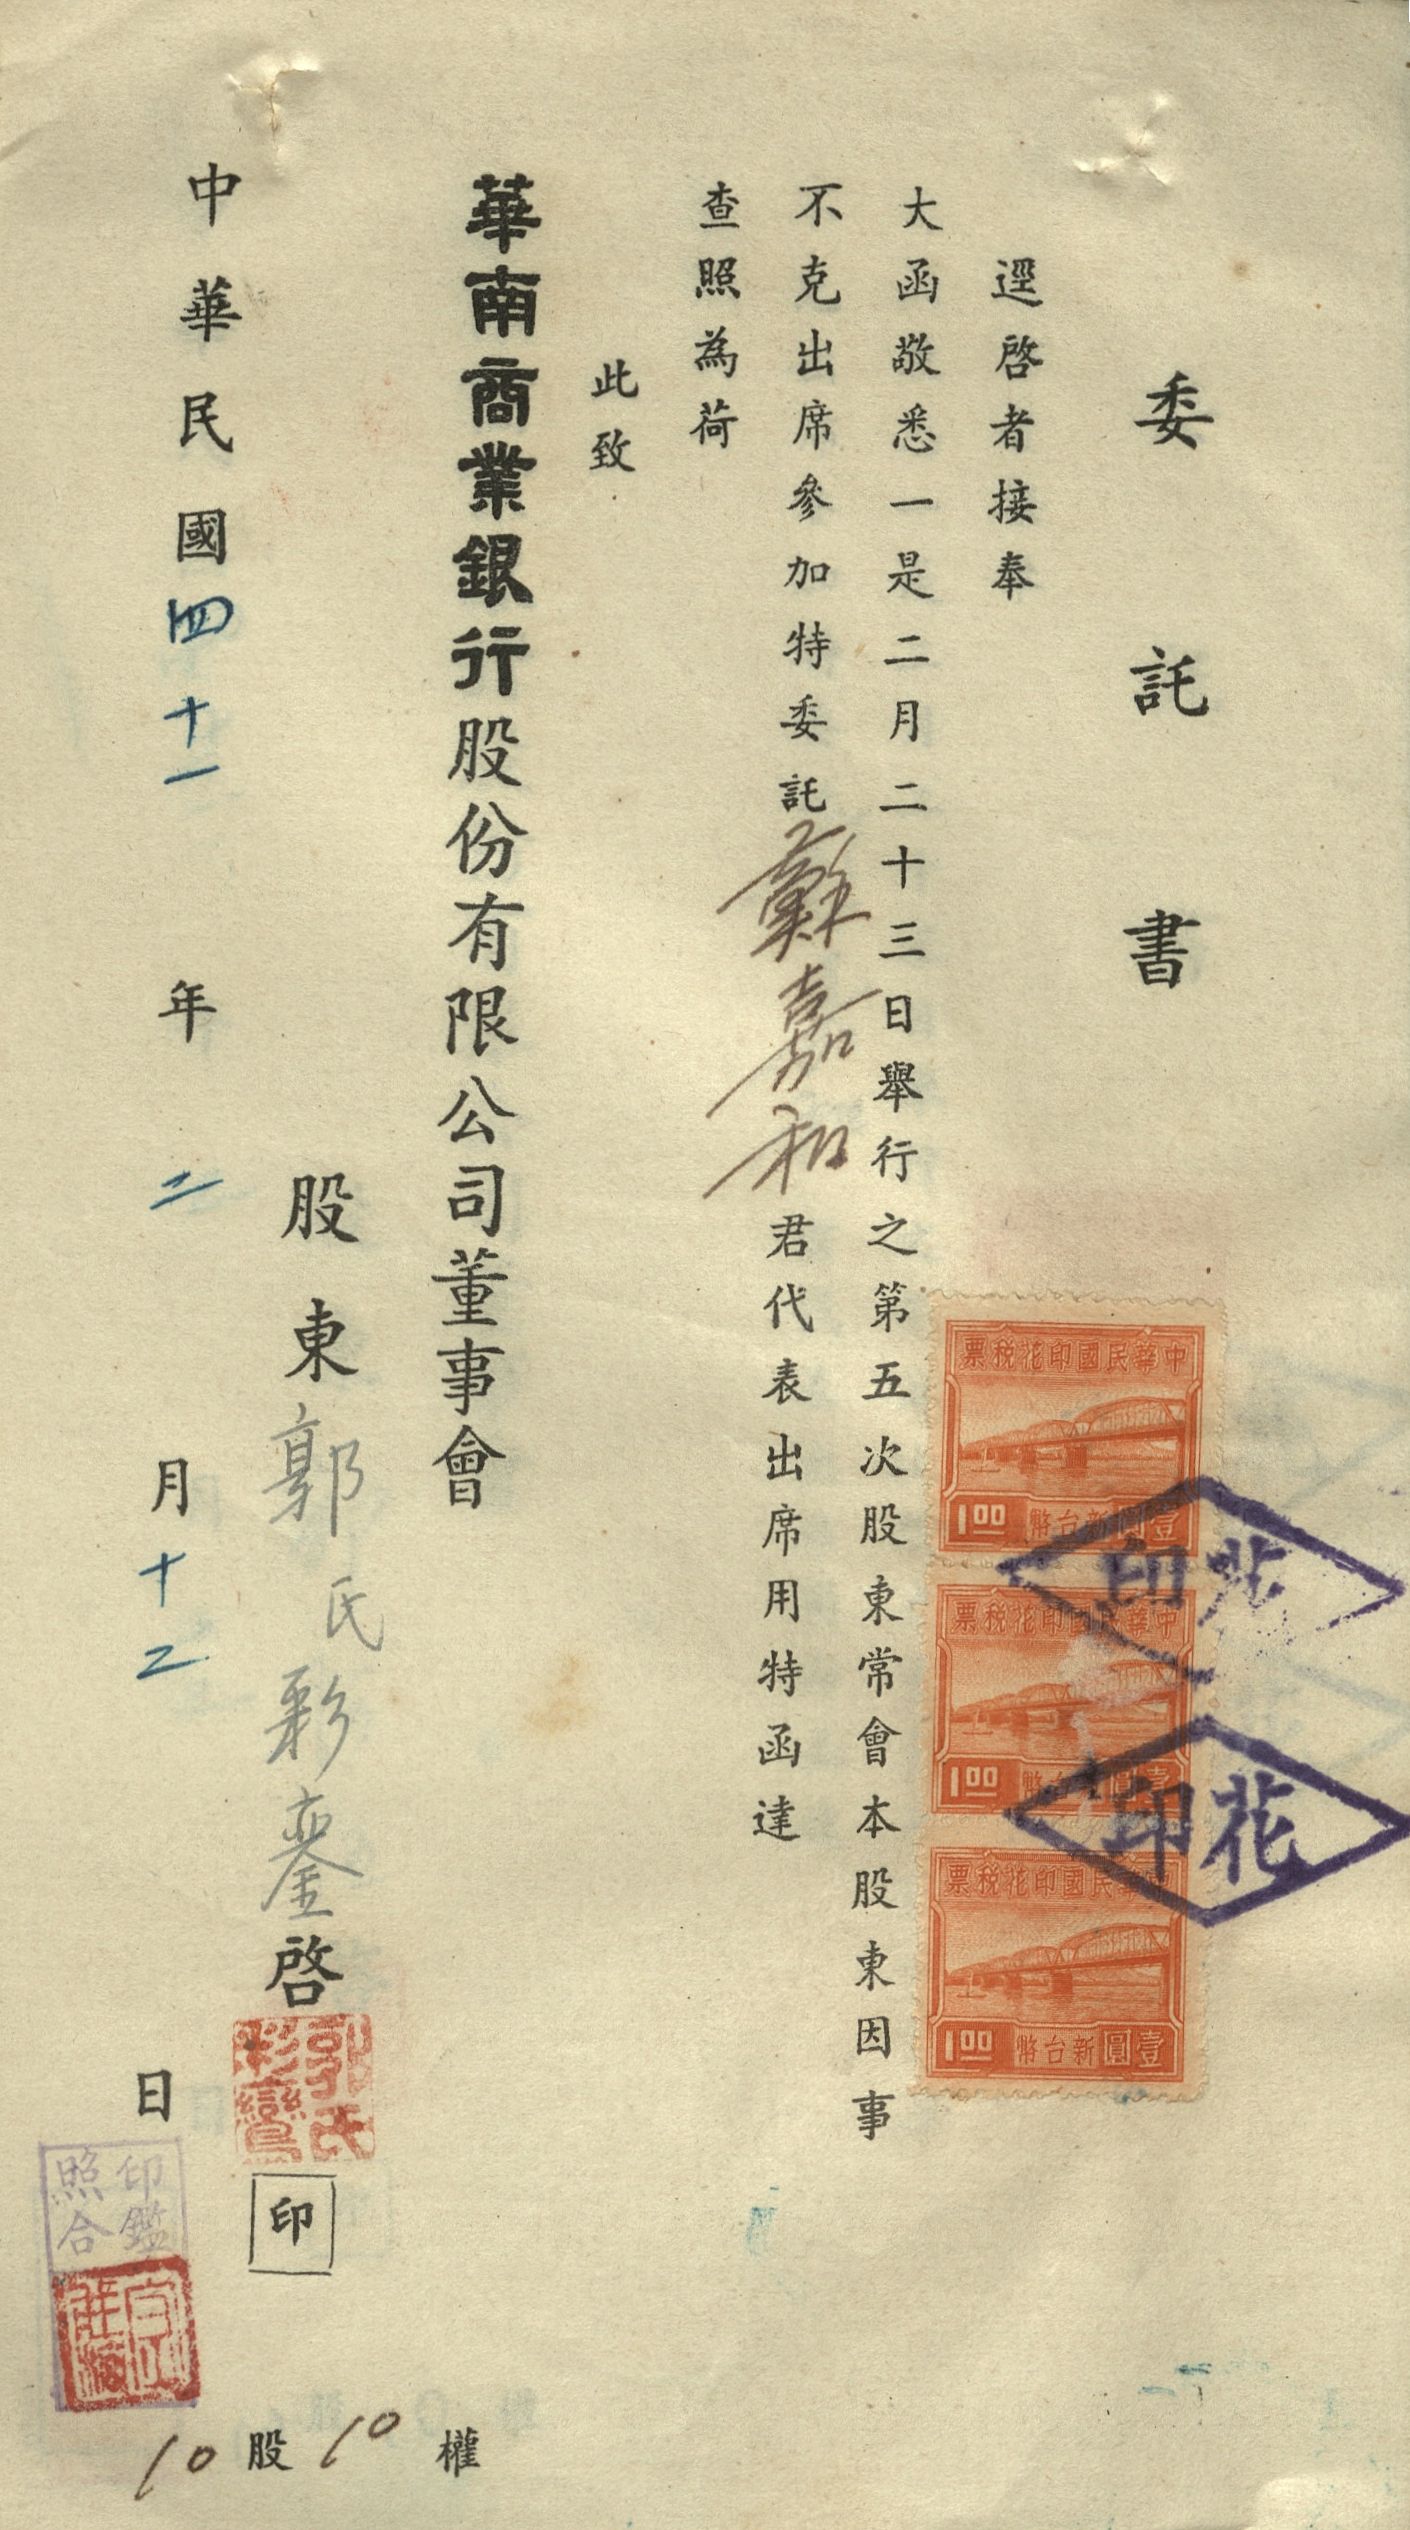 委託書
逕啓者接奉
大函敬悉一是二月二十三日舉行之第五次股東常會本股東因事
不克出席參加特委託蘇嘉和君代表出席用特函達
查照為荷
此致
華南商業銀行股份有限公司董事會
股東郭氏彩銮啓
郭氏
彩鸞
印
中華民國四十一年二月十二日
印鑑
照合
10股10權
中華民國印花稅票
壹圓新台幣
1.00
中華民國印花稅票
壹圓新台幣
1.00
中華民國印花稅票
壹圓新台幣
1.00
花印
花印